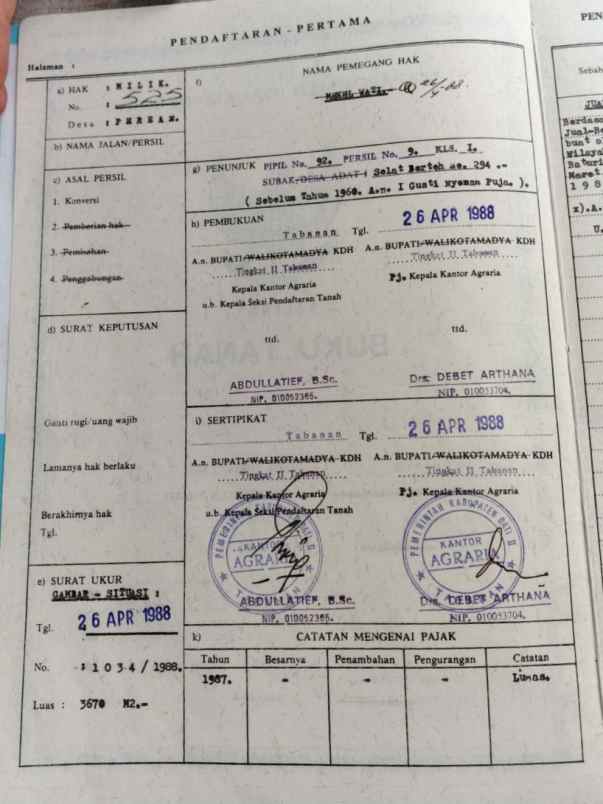 PENDAFTARAN - PERTAMA
Halaman :
a) HAK : MILIK.
No. : 525
Desa : PEREAN.
b) NAMA JALAN/PERSIL
c) ASAL PERSIL
1. Konversi
2. Pemberian hak
3. Pemisahan
4. Penggabungan
d) SURAT KEPUTUSAN
Ganti rugi/uang wajib
Lamanya hak berlaku
Berakhirnya hak
Tgl.
e) SURAT UKUR
GAMBAR - SITUASI :
Tgl. 26 APR 1988
No. : 1034/1988.
Luas : 3670 M2.-
f) NAMA PEMEGANG HAK
g) PENUNJUK PIPIL No. 92. PERSIL No. 9. KLS. I.
SUBAK/DESA ADAT : Selat Berteh No. 294 .-
( Sebelum Tahun 1960. A.n. I Gusti Nyoman Puja. ).
h) PEMBUKUAN
Tabanan Tgl. 26 APR 1988
A.n. BUPATI/WALIKOTAMADYA KDH
Tingkat II Tabanan
Kepala Kantor Agraria
u.b. Kepala Seksi Pendaftaran Tanah
ttd.
ABDULLATIEF, B.Sc.
NIP. 010052365.
A.n. BUPATI/WALIKOTAMADYA KDH
Tingkat II Tabanan
Pj. Kepala Kantor Agraria
ttd.
Drs. DEBET ARTHANA
NIP. 010053704.
i) SERTIPIKAT
Tabanan Tgl. 26 APR 1988
A.n. BUPATI/WALIKOTAMADYA KDH
Tingkat II Tabanan
Kepala Kantor Agraria
u.b. Kepala Seksi Pendaftaran Tanah
KANTOR
AGRARIA
TABANAN
ABDULLATIEF, B.Sc.
NIP. 010052365.
A.n. BUPATI/WALIKOTAMADYA KDH
Tingkat II Tabanan
Pj. Kepala Kantor Agraria
PEMERINTAH KABUPATEN DATI II
KANTOR
AGRARIA
TABANAN
Drs. DEBET ARTHANA
NIP. 010053704.
k) CATATAN MENGENAI PAJAK
Tahun Besarnya Penambahan Pengurangan Catatan
1987. - - - Lunas.
PEN
Sebab
Jual-Be
Maret
198
x).A.
U.